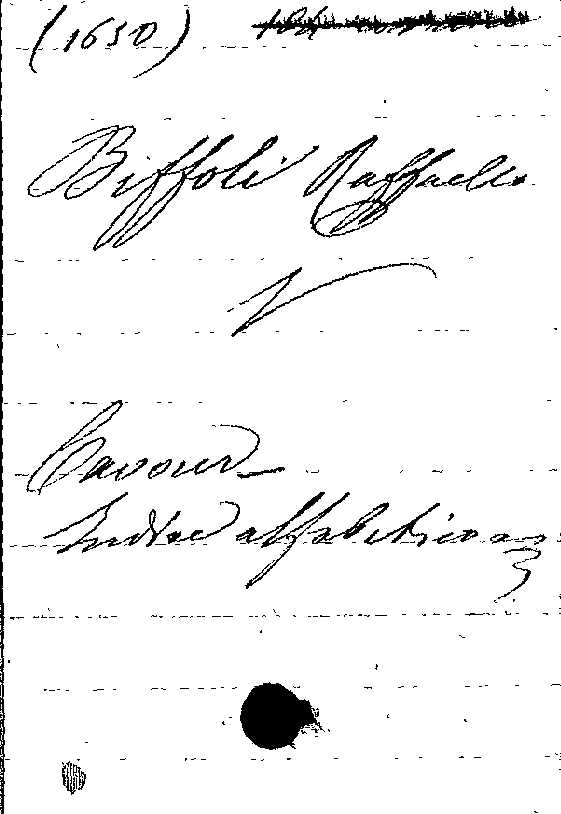 (1630)
Biffoli Raffaello
V
Cavour
Indice alfabetico
3